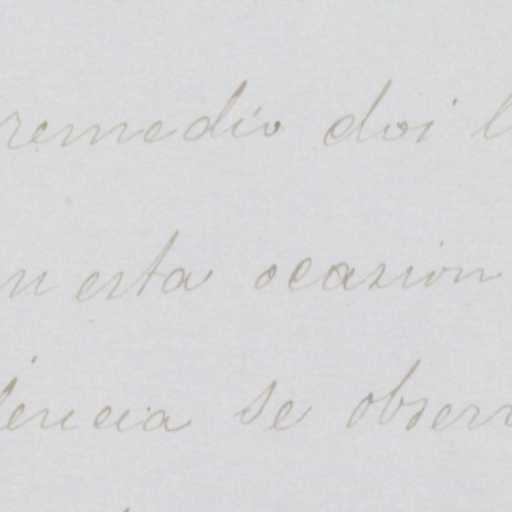 remedio doi
n esta ocasion
lencia se observ